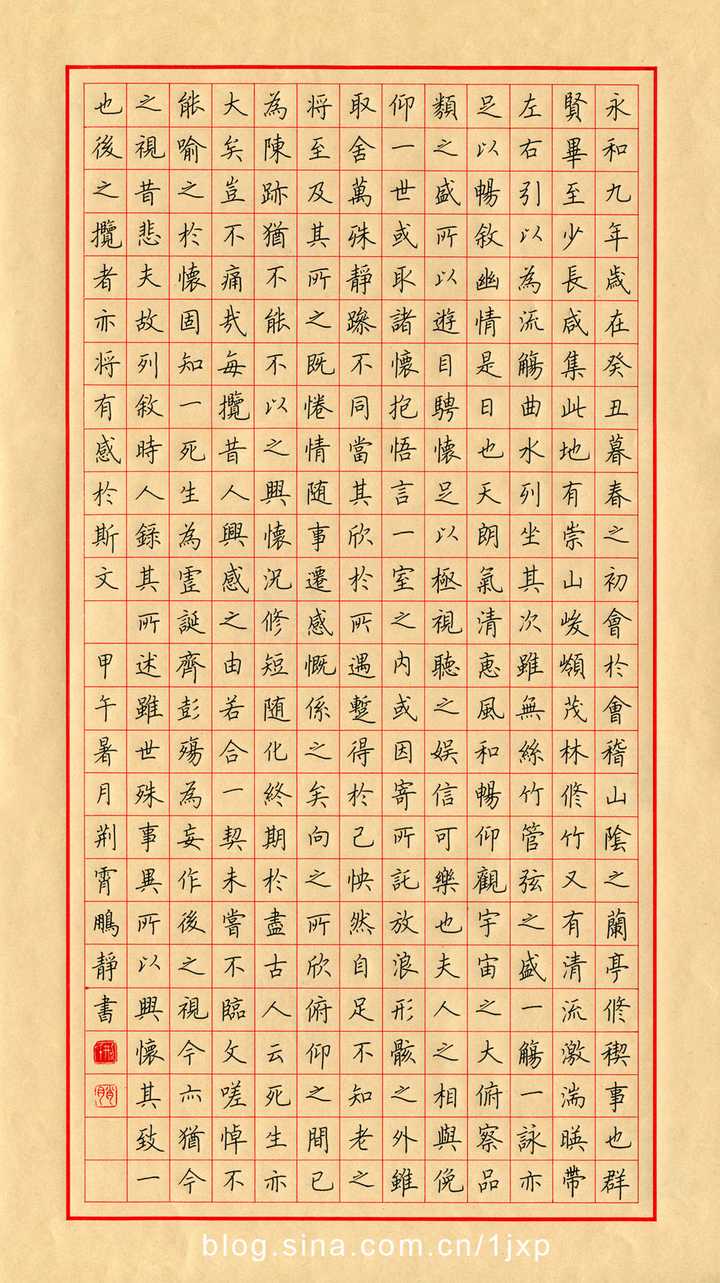 永和九年歲在癸丑暮春之初會於會稽山陰之蘭亭修稧事也群
賢畢至少長咸集此地有崇山峻嶺茂林修竹又有清流激湍暎帶
左右引以為流觴曲水列坐其次雖無絲竹管弦之盛一觴一詠亦
足以暢敘幽情是日也天朗氣清惠風和暢仰觀宇宙之大俯察品
類之盛所以遊目騁懷足以極視聽之娛信可樂也夫人之相與俛
仰一世或取諸懷抱悟言一室之内或因寄所託放浪形骸之外雖
取舍萬殊靜躁不同當其欣於所遇蹔得於己怏然自足不知老之
將至及其所之既惓情随事遷感慨係之矣向之所欣俯仰之間已
為陳跡猶不能不以之興懷況修短随化終期於盡古人云死生亦
大矣豈不痛哉每攬昔人興感之由若合一契未嘗不臨文嗟悼不
能喻之於懷固知一死生為虛誕齊彭殤為妄作後之視今亦猶今
之視昔悲夫故列敘時人錄其所述雖世殊事異所以興懷其致一
也後之攬者亦將有感於斯文 甲午暑月荆霄鵬靜書
blog.sina.com.cn/1jxp